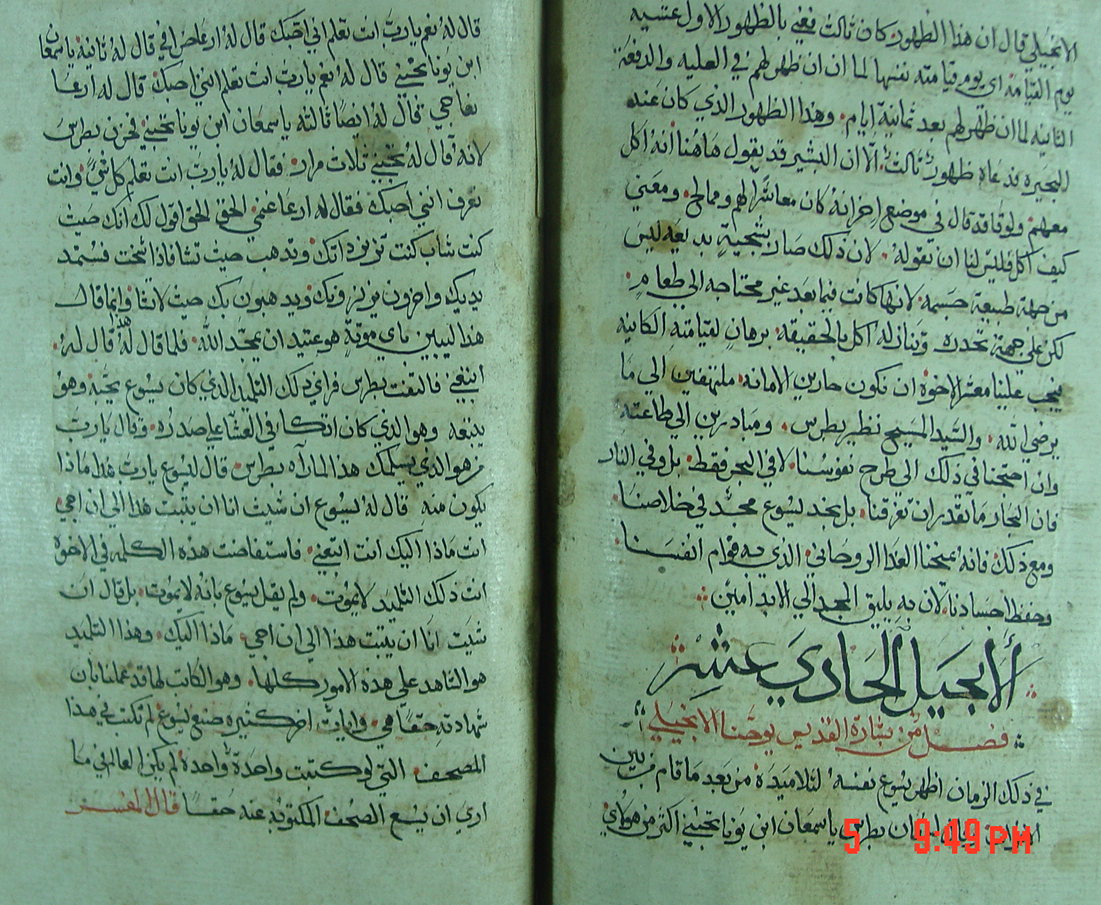 الانجيلي قال ان هذا الظهور كان ثالث فعني بالظهور الاول عشية
يوم القيامه اي يوم قيامته نفسها لما ان ظهر لهم في العليه والدفعة
الثانيه لما ان ظهر لهم بعد ثمانية ايام. وهذا الظهور الذي كان عند
البحيره يدعاه ظهور ثالث. الا ان البشير قد يقول هاهنا انه اكل
معهم ولوقا قد قال في موضع اخر انه كان معاشرا لهم وممالح. ومعني
كيف اكل فليس لنا ان نقوله. لان ذلك صار بسجية بديعه ليس
من جهة طبيعة جسمه لانها كانت فيما بعد غير محتاجه الي طعام
لكن علي جهة تحدره وتنازله اكل بالحقيقه. برهان لقيامته الكاينه
يجب علينا معشر الاخوة ان نكون حارين الامانه ملتهفين الي ما
يرضي الله. والسيد المسيح نظير بطرس. ومبادرين الي طاعته
وان احتجنا في ذلك الي طرح نفوسنا لا في البحر فقط. بل وفي النار
فان البحار ما تقدر ان تغرقنا. بل نجد يسوع مجد في خلاصنا
ومع ذلك فانه يمنحنا الغدا الروحاني الذي به قوام انفسنا.
وحفظ اجسادنا. لان به يليق المجد الي الابد امين
ألانجيل الحادي عشر
فصل من بشارة القديس يوحنا الانجيلي
في ذلك الزمان اظهر يسوع نفسه لتلاميذه من بعد ما قام من بين
الاموات وقال لسمعان بطرس يا سمعان ابن يونا تحبني اكثر من هولاي
5 9:49 PM
قال له نعم يا رب انت تعلم اني احبك قال له ارع خرافي قال له ثانية يا سمعان
ابن يونا تحبني قال له نعم يا رب انت تعلم انني احبك قال له ارعا
نعاجي قال له ايضا ثالثه يا سمعان ابن يونا تحبني فحزن بطرس
لانه قال له تحبني ثلاث مرار. فقال له يا رب انت تعلم كل شي وانت
تعرف انني احبك فقال له ارعا غنمي الحق الحق اقول لك انك حيث
كنت شاب كنت تزنر ذاتك وتذهب حيث تشا فاذا شخت فستمد
يديك واخرون يزنرونك ويذهبون بك حيث لا تشا وانما قال
هذا ليبين باي موتة هو عتيد ان يمجد الله. فلما قال له هذا قال له.
اتبعني فالتفت بطرس فراي ذلك التلميذ الذي كان يسوع يحبه وهو
يتبعه وهو الذي كان اتكا في العشا علي صدره. وقال يا رب
من هو الذي يسلمك هذا لما رآه بطرس قال ليسوع يا رب فهذا ماذا
يكون منه قال له يسوع ان شيت انا ان يثبت هذا الي ان اجي
انت ماذا اليك انت اتبعني. فاستفاضت هذه الكلمه في الاخوه
ان ذلك التلميذ لا يموت. ولم يقل يسوع بانه لا يموت. بل قال ان
شيت انا ان يثبت هذا الي ان اجي. ماذا اليك. وهذا التلميذ
هو الشاهد علي هذه الامور كلها. وهو الكاتب لها قد علمنا بان
شهادته حقا هي. وايات اخر كثيره صنع يسوع لم تكتب في هذا
المصحف. التي لو كتبت واحدة واحدة لم يكن العالم في ما
اري ان يسع الصحف المكتوبه عنه حقا قال المفسر